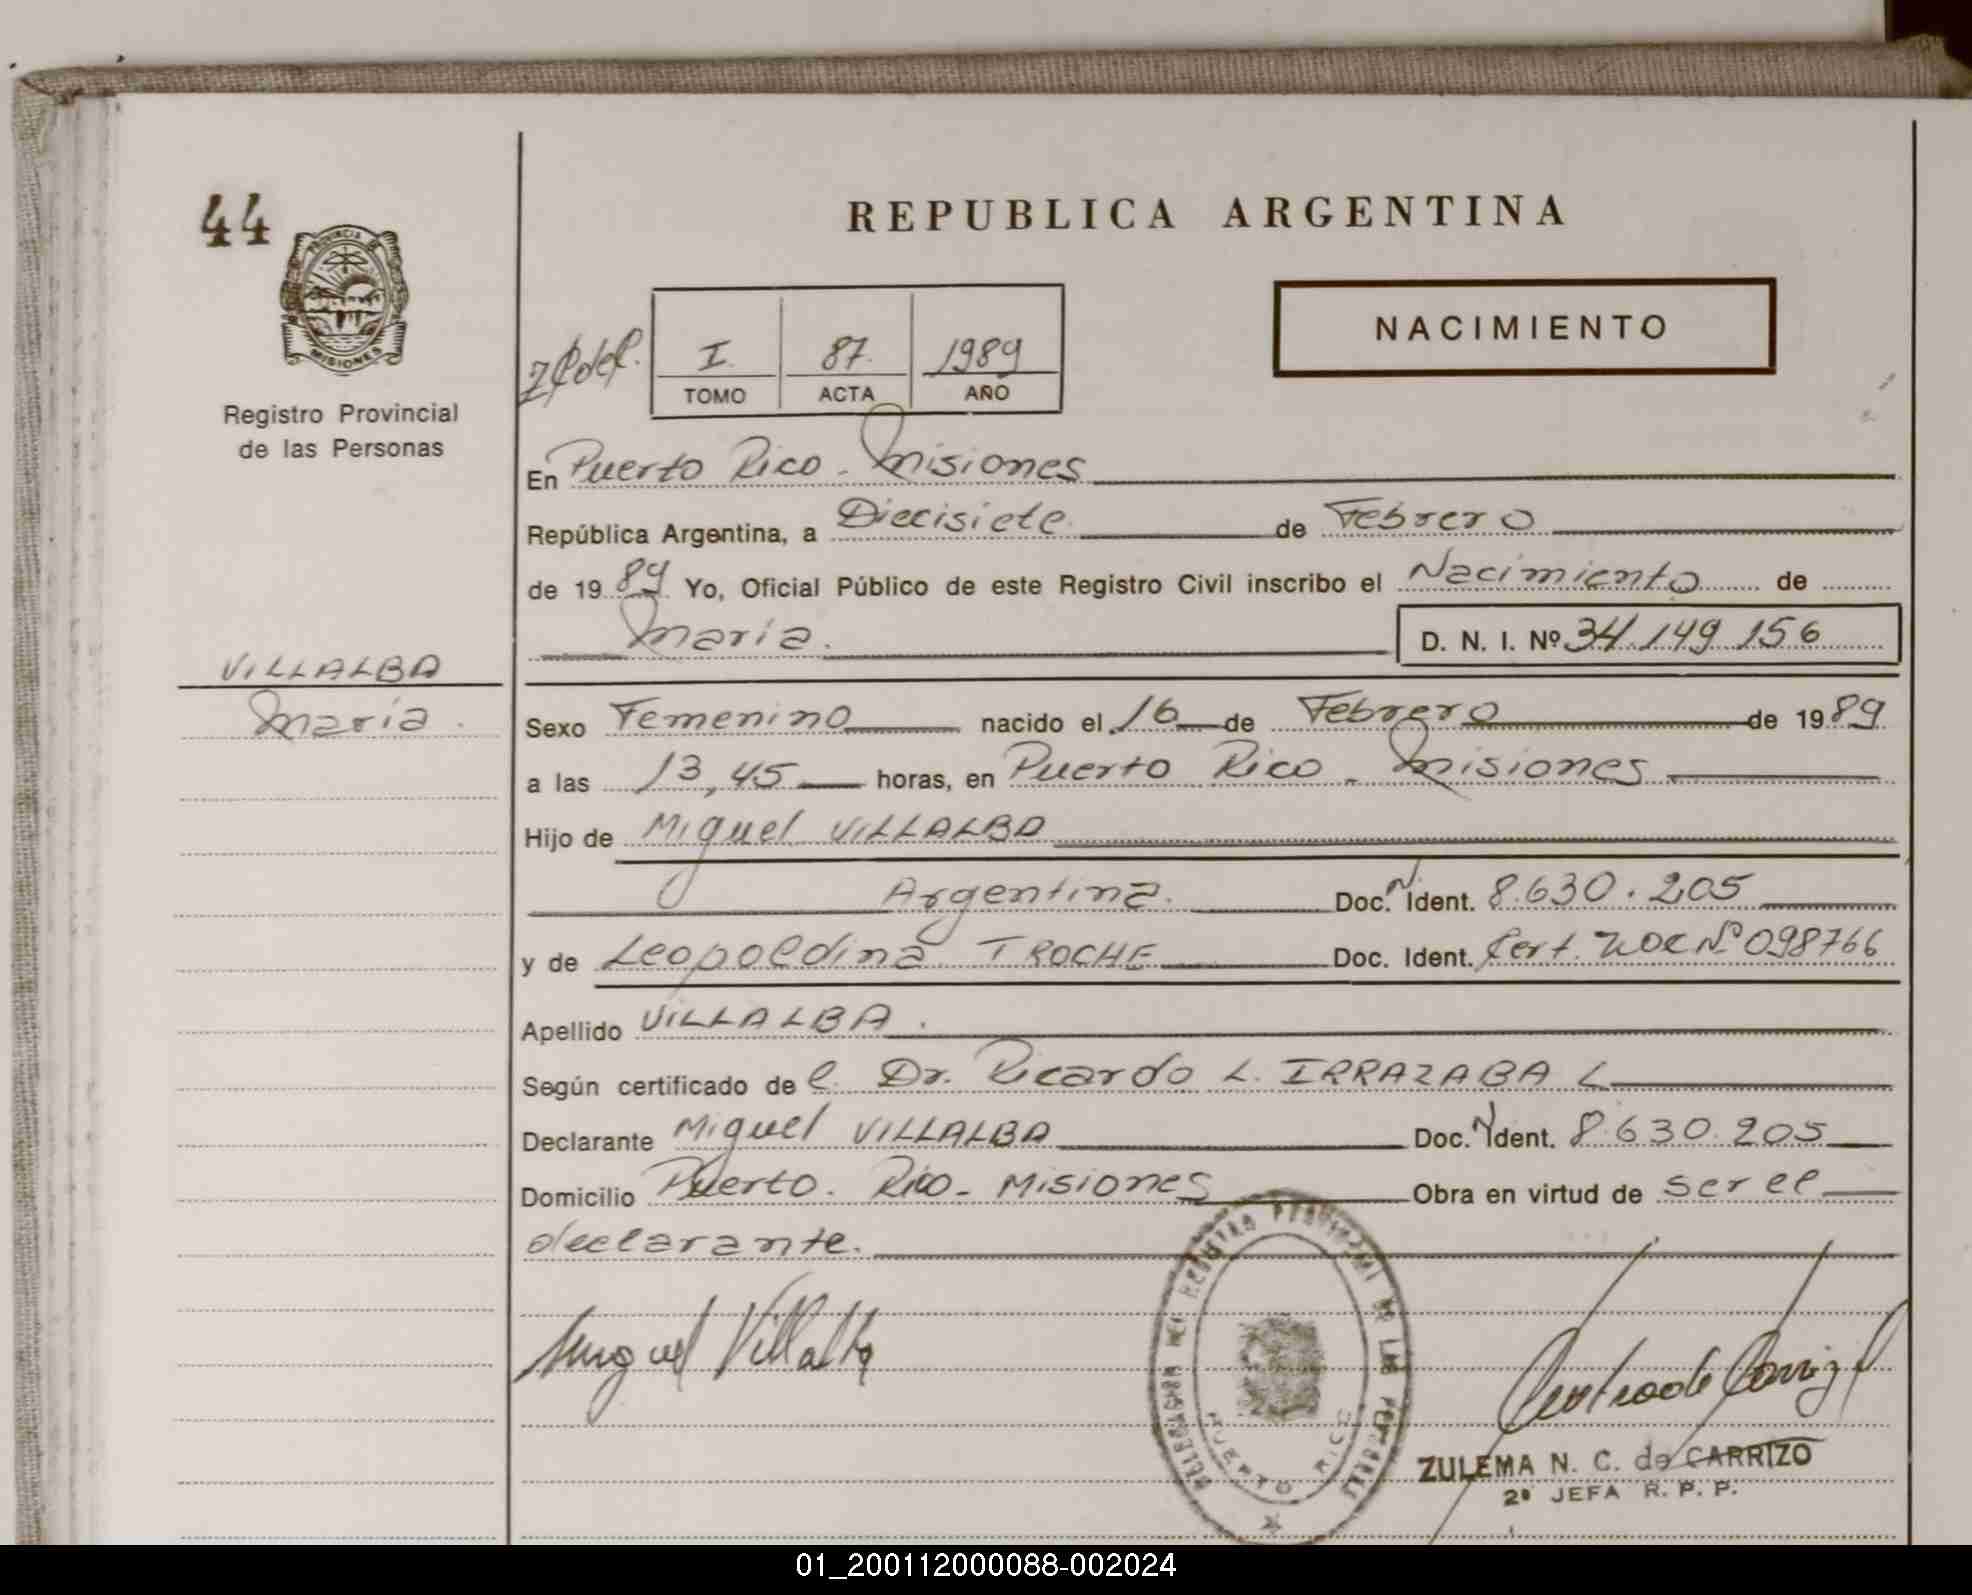 44
PROVINCIA DE
MISIONES
Registro Provincial
de las Personas
VILLALBA
Maria.
REPUBLICA ARGENTINA
NACIMIENTO
I. 87. 1989
TOMO ACTA AÑO
En Puerto Rico - Misiones
República Argentina, a Diecisiete de Febrero
de 1989 Yo, Oficial Público de este Registro Civil inscribo el Nacimiento de
Maria. D. N. I. Nº 34.149.156
Sexo Femenino nacido el 16 de Febrero de 1989
a las 13,45 horas, en Puerto Rico - Misiones
Hijo de Miguel VILLALBA
Argentina. Doc. N. Ident. 8.630.205
y de Leopoldina TROCHE Doc. Ident. Cert. Nº 098766
Apellido VILLALBA.
Según certificado del Dr. Ricardo L. IRRAZABAL
Declarante Miguel VILLALBA Doc. N Ident. 8.630.205
Domicilio Puerto. Rico - Misiones Obra en virtud de ser el
declarante.
Miguel Villalba
DEL REGISTRO PROVINCIAL DE LAS PERSONAS
PUERTO RICO
ZULEMA N. C. de CARRIZO
2º JEFA R. P. P.
01_200112000088-002024